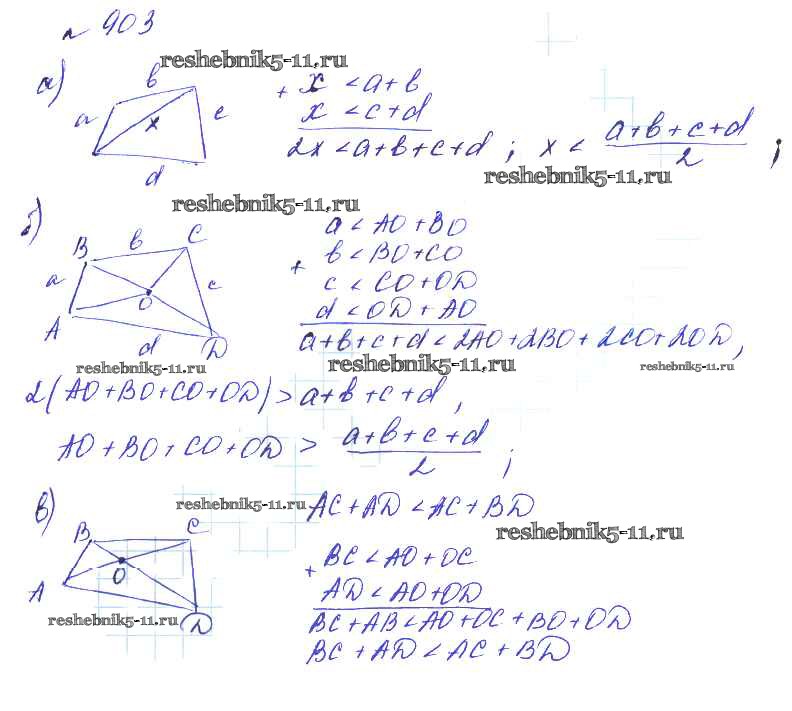 № 903
reshebnik5-11.ru
а)
a b c d x
+ x < a+b
x < c+d
2x < a+b+c+d ; x < (a+b+c+d)/2 ;
reshebnik5-11.ru
reshebnik5-11.ru
б)
B b C
a O c
A d D
reshebnik5-11.ru
+ a < AO+BO
b < BO+CO
c < CO+OD
d < OD+AO
a+b+c+d < 2AO+2BO+2CO+2OD,
reshebnik5-11.ru
reshebnik5-11.ru
2(AO+BO+CO+OD) > a+b+c+d,
AO+BO+CO+OD > (a+b+c+d)/2 ;
в)
reshebnik5-11.ru
AC+AD < AC+BD
reshebnik5-11.ru
B C
O
A D
reshebnik5-11.ru
+ BC < AO+OC
AD < AO+OD
BC+AB < AO+OC+BO+OD
BC+AD < AC+BD